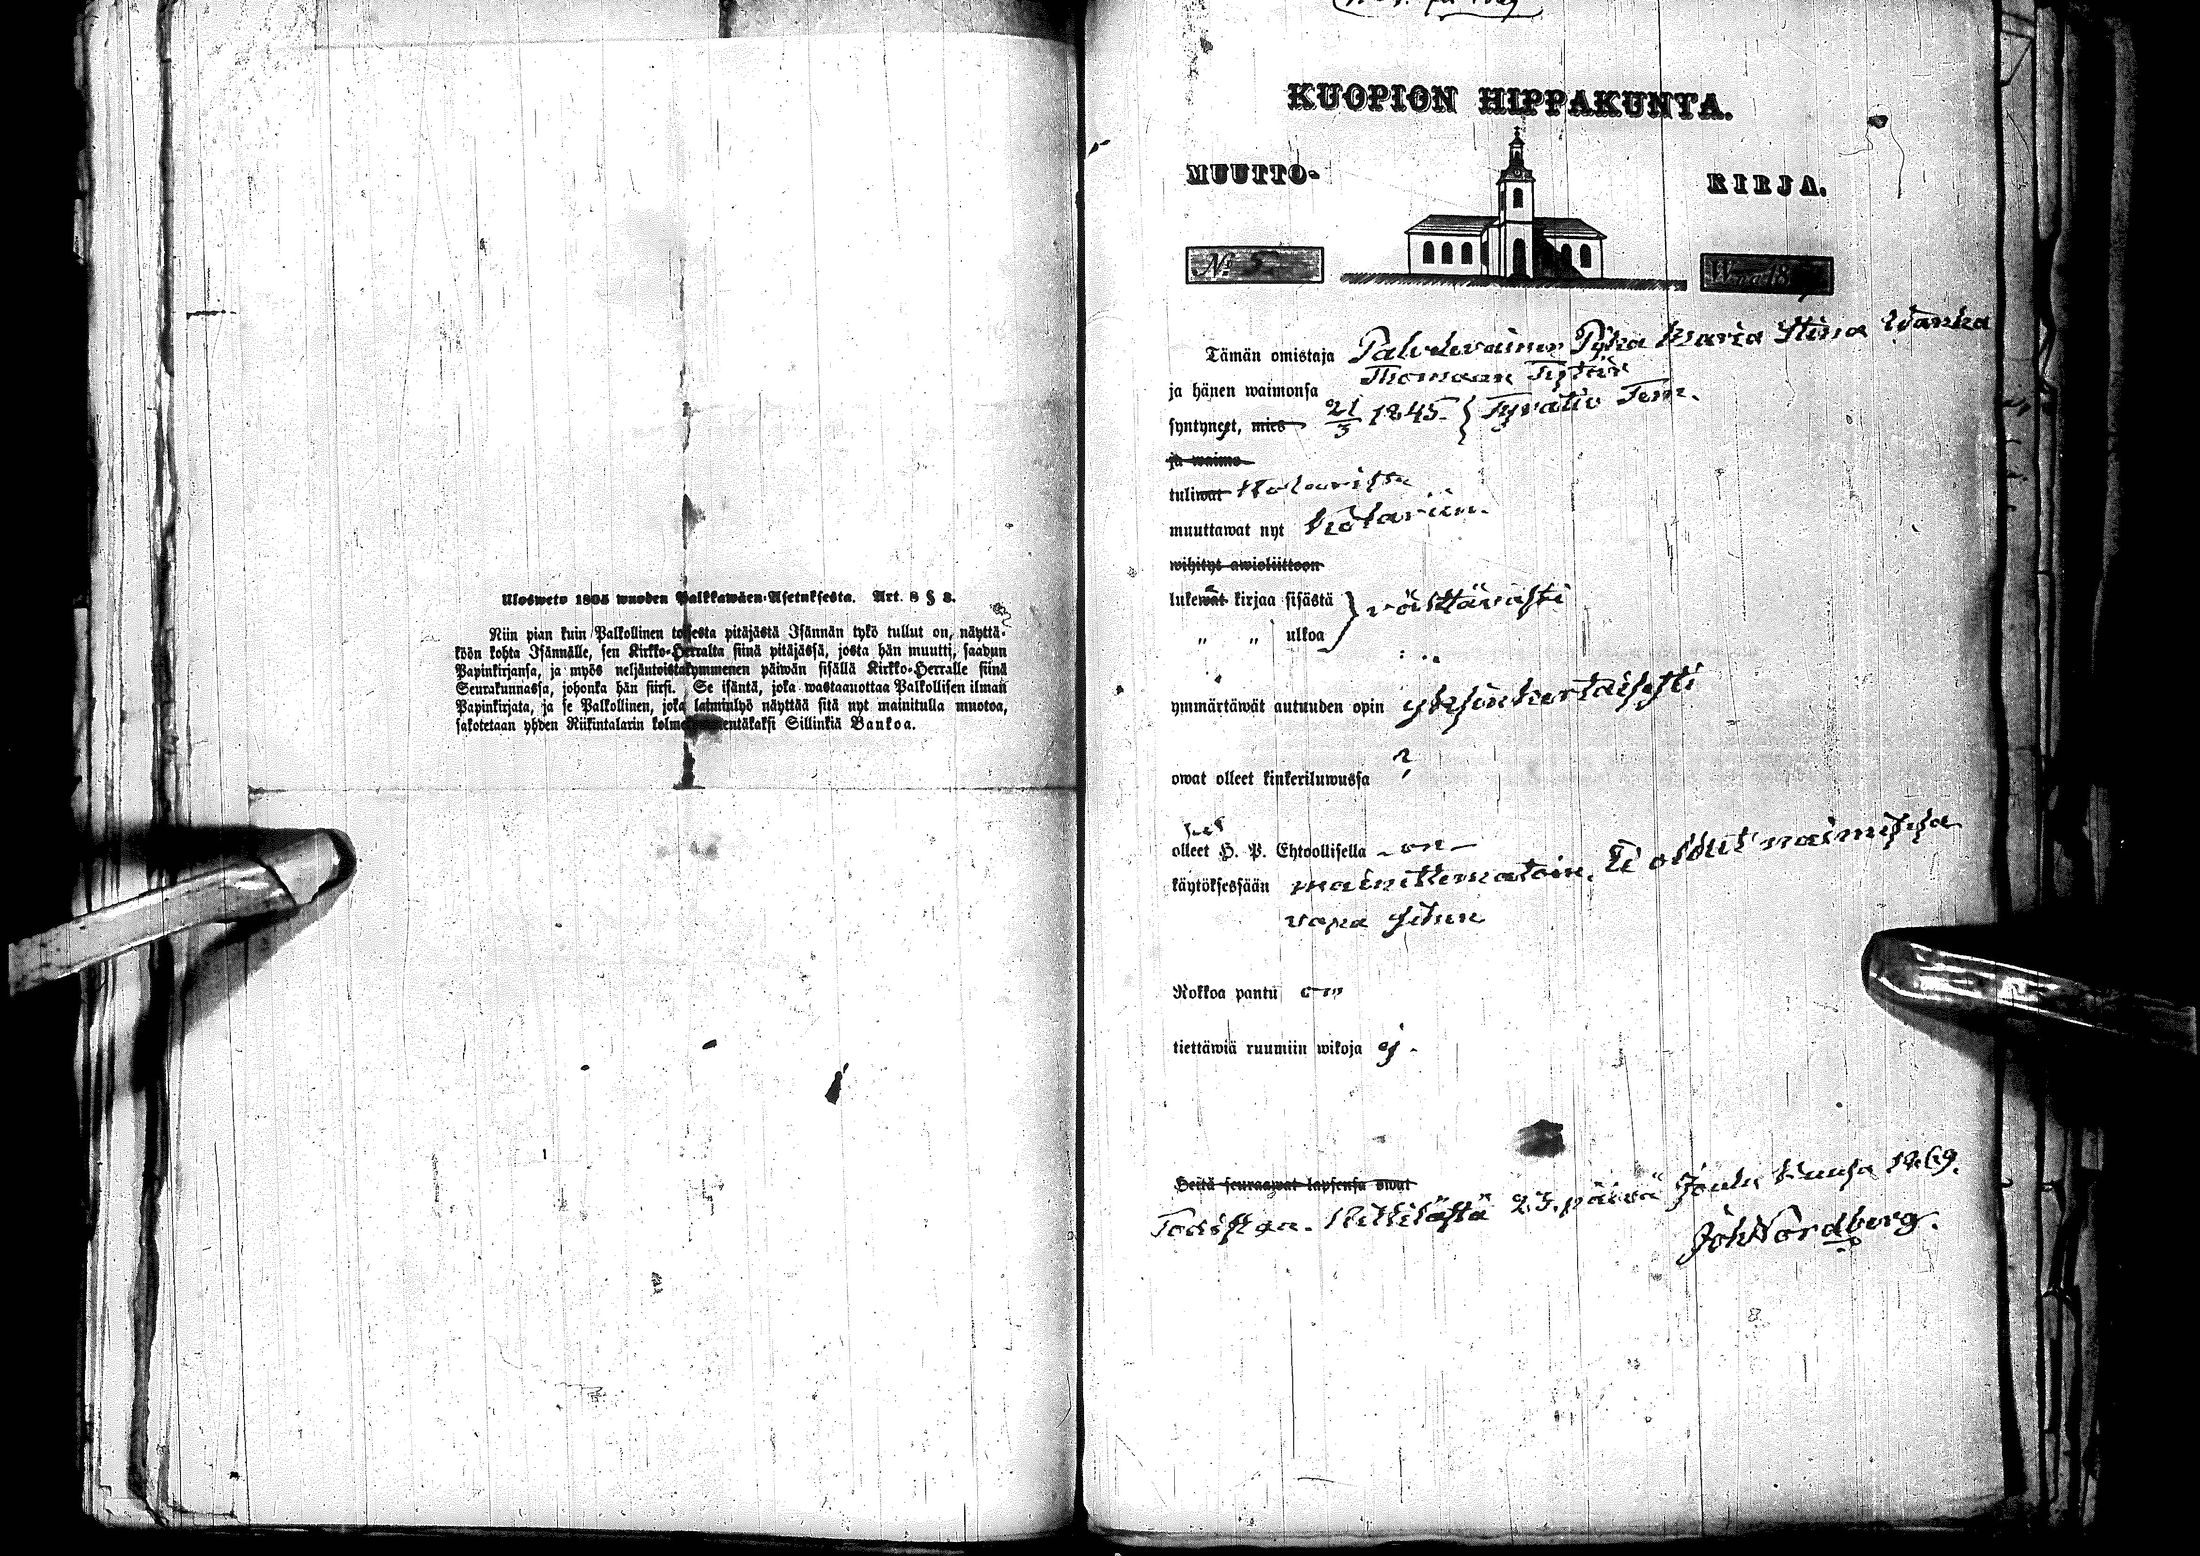 Ulosweto 1805 wuoden Palkkawäen-Asetuksesta. Art. 8 § 8.
Niin pian kuin Palkollinen toisesta pitäjästä Isännän tykö tullut on, näyttä-
köön kohta Isännälle, sen Kirkko-Herralta siinä pitäjässä, josta hän muutti, saadun
Papinkirjansa, ja myös neljäntoistakymmenen päiwän sisällä Kirkko-Herralle siinä
Seurakunnassa, johonka hän siirsi. Se isäntä, joka wastaanottaa Palkollisen ilman
Papinkirjata, ja se Palkollinen, joka laiminlyö näyttää sitä nyt mainitulla muotoa,
sakotetaan yhden Riikintalarin kolmekymmentäkaksi Sillinkiä Bankoa.
KUOPION HIPPAKUNTA.
MUUTTO- KIRJA.
No 5. Wuona 18
Tämän omistaja Palvelevainen Pijka Maria Stina
Thomaan Tytär
ja hänen waimonsa
syntynyt, mies 21/3 1845.
ja waimo
tuliwat Kolarista
muuttawat nyt Kolariin.
wihityt awioliittoon
lukewat kirjaa sisästä } välttävästi
" " ulkoa
ymmärtäwät autuuden opin yksinkertaisesti
owat olleet kinkeriluwussa ?
olleet H. P. Ehtoollisella - on -
käytöksessään mainittematoin. Ei ollut naimisissa
vapa siihen
Rokkoa pantu on
tiettäwiä ruumiin wikoja ej.
Heitä seuraawat lapsensa owat
Todistaa. Kittilästä 23. päivä Joulu Kuusa 1869.
Joh Nordberg.